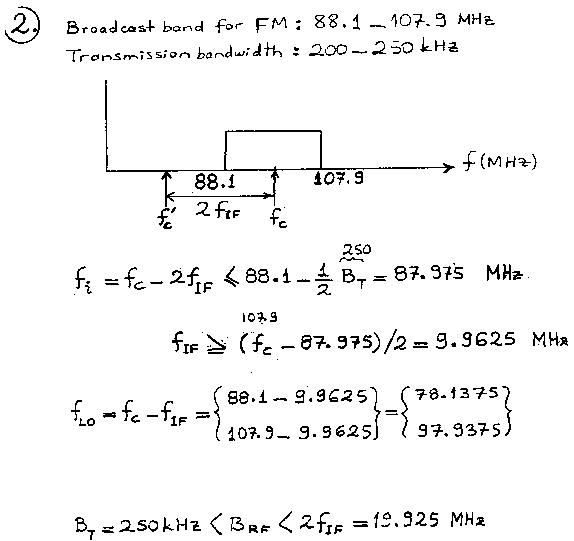 2. Broadcast band for FM : 88.1 – 107.9 MHz
Transmission bandwidth : 200 – 250 kHz
f (MHz)
88.1 107.9
2 f_IF
f_c' f_c
250
f_i = f_c - 2f_IF ≤ 88.1 - 1/2 B_T = 87.975 MHz
107.9
f_IF ≥ (f_c - 87.975)/2 = 9.9625 MHz
f_LO = f_c - f_IF = { 88.1 - 9.9625 } = { 78.1375 }
107.9 - 9.9625 97.9375
B_T = 250 kHz < B_RF < 2f_IF = 19.925 MHz